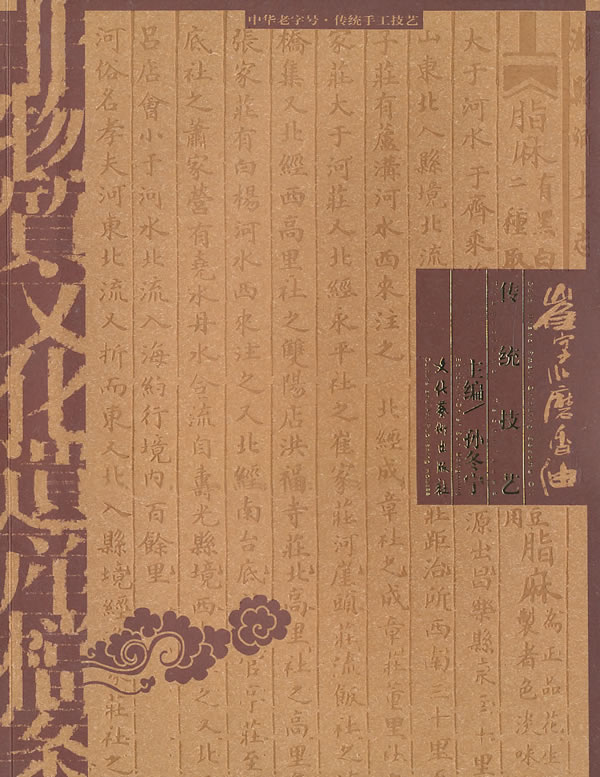 中华老字号·传统手工技艺
非物質文化遺産檔案
崔字小磨香油
传统技艺
主编/孙冬宁
文化艺术出版社
脂麻 有黑白二種取
大于河水于齊乘
山東北入縣境北流
莊距治所西南三十里
子莊有蘆溝河水西來注之 北經成章社之成章莊管里社
家莊大于河莊又北經永平社之崔家莊河崖頭莊流飯社之
橋集又北經西高里社之雙陽店洪福寺莊北高里社之高里
張家莊有白楊河水西來注之又北經南台底
底社之蕭家營有堯水丹水合流自壽光縣境西
之又北
呂店會小于河水北流入海約行境內百餘里
河俗名孝夫河東北流又折而東又北入縣境經
莊社之
源出昌樂縣
脂麻 為正品花生
製者色淡味